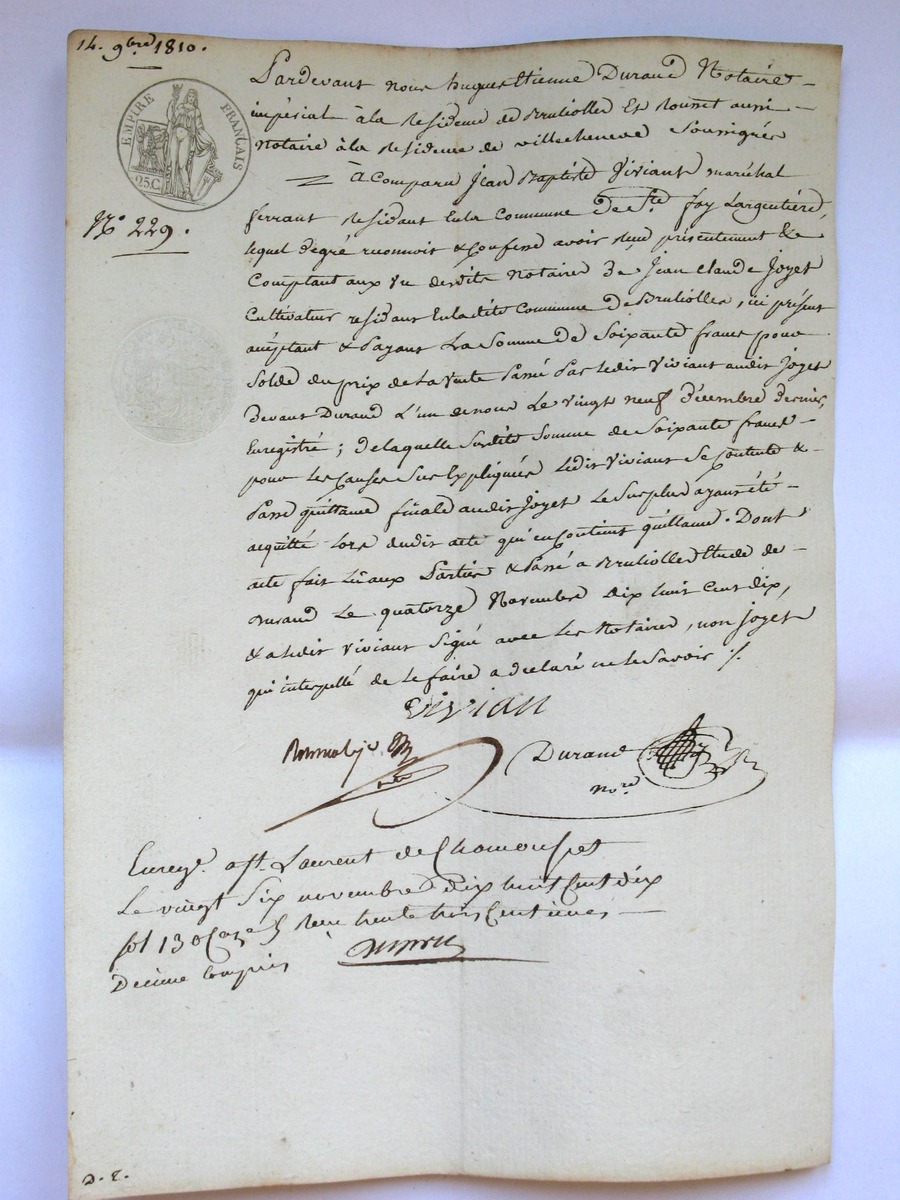 14. 9bre 1810.
EMPIRE FRANÇAIS
25.C.
N.° 229.
Pardevant nous hugues Etienne Durand Notaire
impérial à la residence de Brullioles Et Rousset aussi
Notaire à la residence de villecheneve Soussignés
A Comparu Jean Baptiste Viviant maréchal
ferrant residant En la Commune De Ste foy Largentiere,
lequel de gré reconnoit & Confesse avoir reçu présentement &
Comptant aux vu desdits Notaires De Jean Claude Joyet
Cultivateur residant En ladite Commune De Brullioles, ici présent
acceptant & Payant La Somme De Soixante francs pour
Solde du prix de La Vente Passé Par ledit Viviant audit Joyet
Devant Durand L'un de nous Le Vingt neuf Décembre Dernier,
Enregistré ; De laquelle Susdite Somme de Soixante francs
pour les Causes Sus Expliquées Ledit Viviant Se Contente &
Passe quittance finale audit Joyet Le Surplus ayant été
acquitté Lors dudit acte qui en Contient quittance. Dont
acte fait Lu aux Parties & Passé a Brullioles Etude de
Durand Le quatorze Novembre Dix huit Cent Dix,
& a Ledit Viviant Signé avec Les Notaires, non Joyet
qui interpellé de Le faire a declaré ne le Savoir ./.
vivian
Durand
Nore
Enregé. a St. Laurent de Chamousset
Le vingt Six novembre Dix huit Cent dix
fol 130 Case 5 Reçu trente trois Centimes
Decime Compris
D. E.